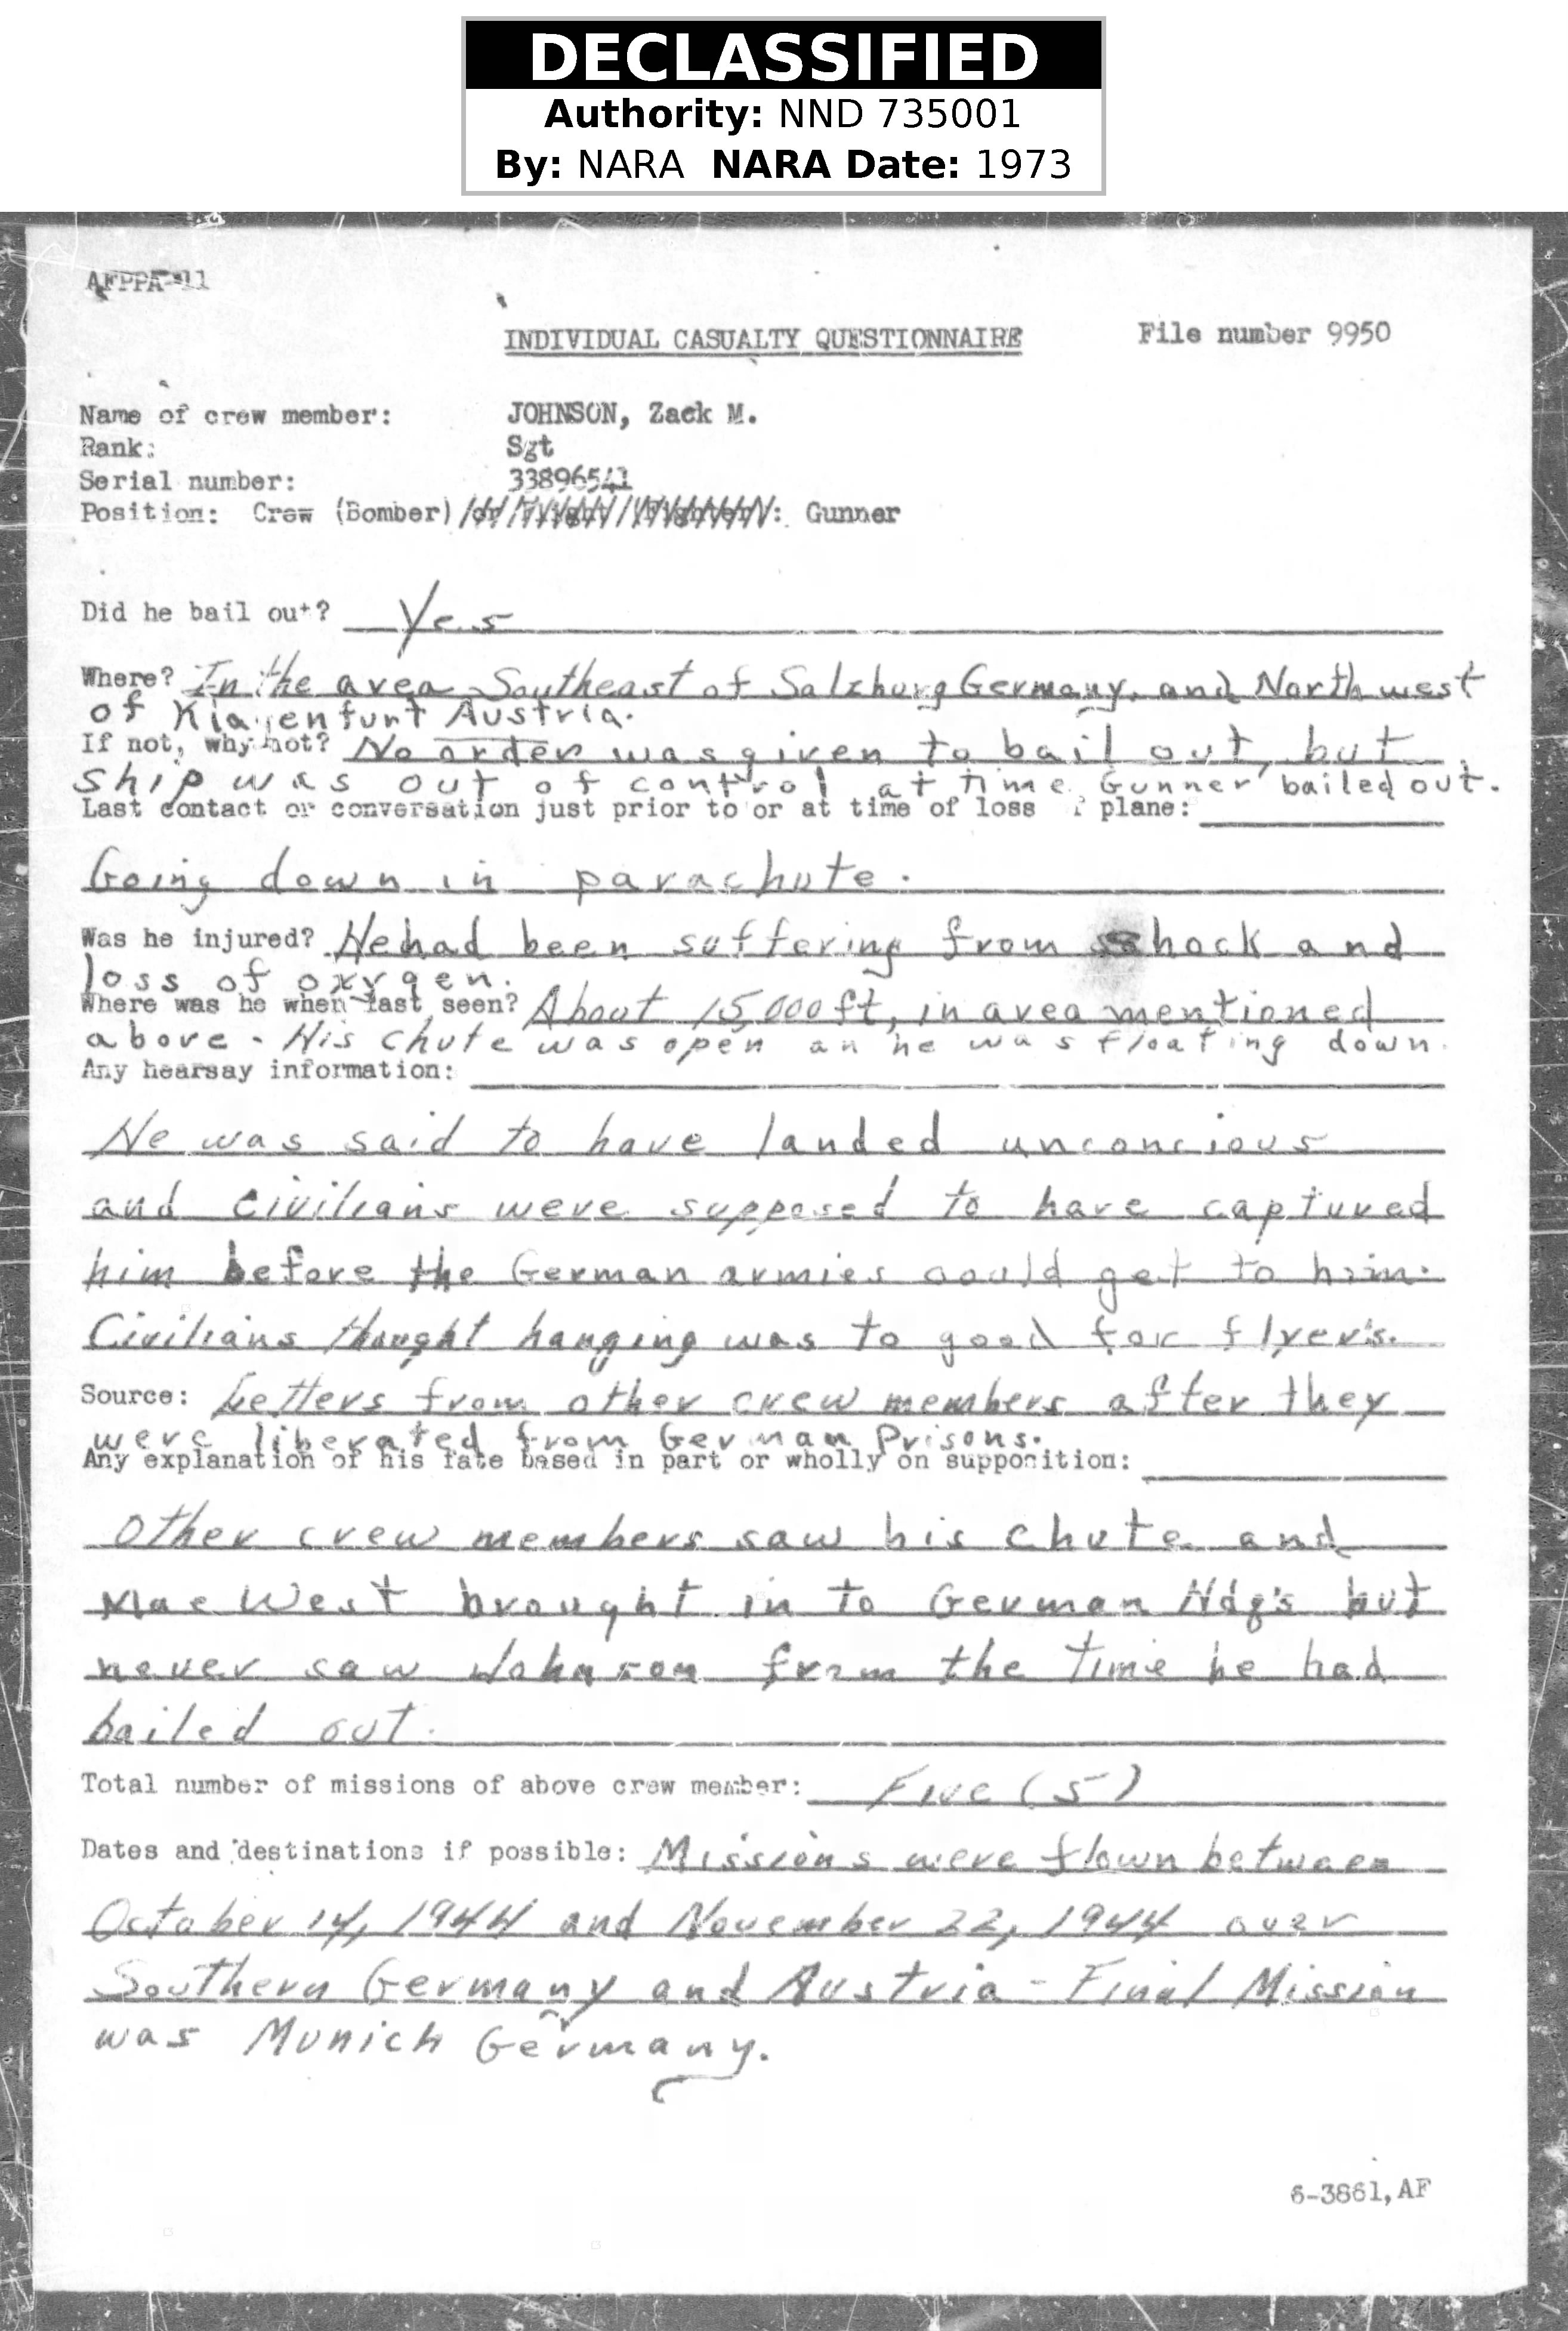 DECLASSIFIED
Authority: NND 735001
By: NARA NARA Date: 1973
AFPPA-11
INDIVIDUAL CASUALTY QUESTIONNAIRE File number 9950
Name of crew member: JOHNSON, Zack M.
Rank: Sgt
Serial number: 33896541
Position: Crew (Bomber) : Gunner
Did he bail out? Yes
Where? In the area Southeast of Salzburg Germany, and Northwest
of Klagenfurt Austria.
If not, why not? No order was given to bail out, but
ship was out of control at time Gunner bailed out.
Last contact or conversation just prior to or at time of loss plane:
Going down in parachute.
Was he injured? He had been suffering from shock and
loss of oxygen.
Where was he when last seen? About 15,000 ft, in area mentioned
above. His chute was open an he was floating down.
Any hearsay information:
He was said to have landed unconcious
and civilians were supposed to have captured
him before the German armies could get to him.
Civilians thought hanging was to good for flyer's.
Source: Letters from other crew members after they
were liberated from German Prisons.
Any explanation of his fate based in part or wholly on supposition:
Other crew members saw his chute and
Mae West brought in to German Hdq's but
never saw Johnson from the time he had
bailed out.
Total number of missions of above crew member: Five (5)
Dates and destinations if possible: Missions were flown between
October 14, 1944 and November 22, 1944 over
Southern Germany and Austria - Final Mission
was Munich Germany.
6-3861, AF